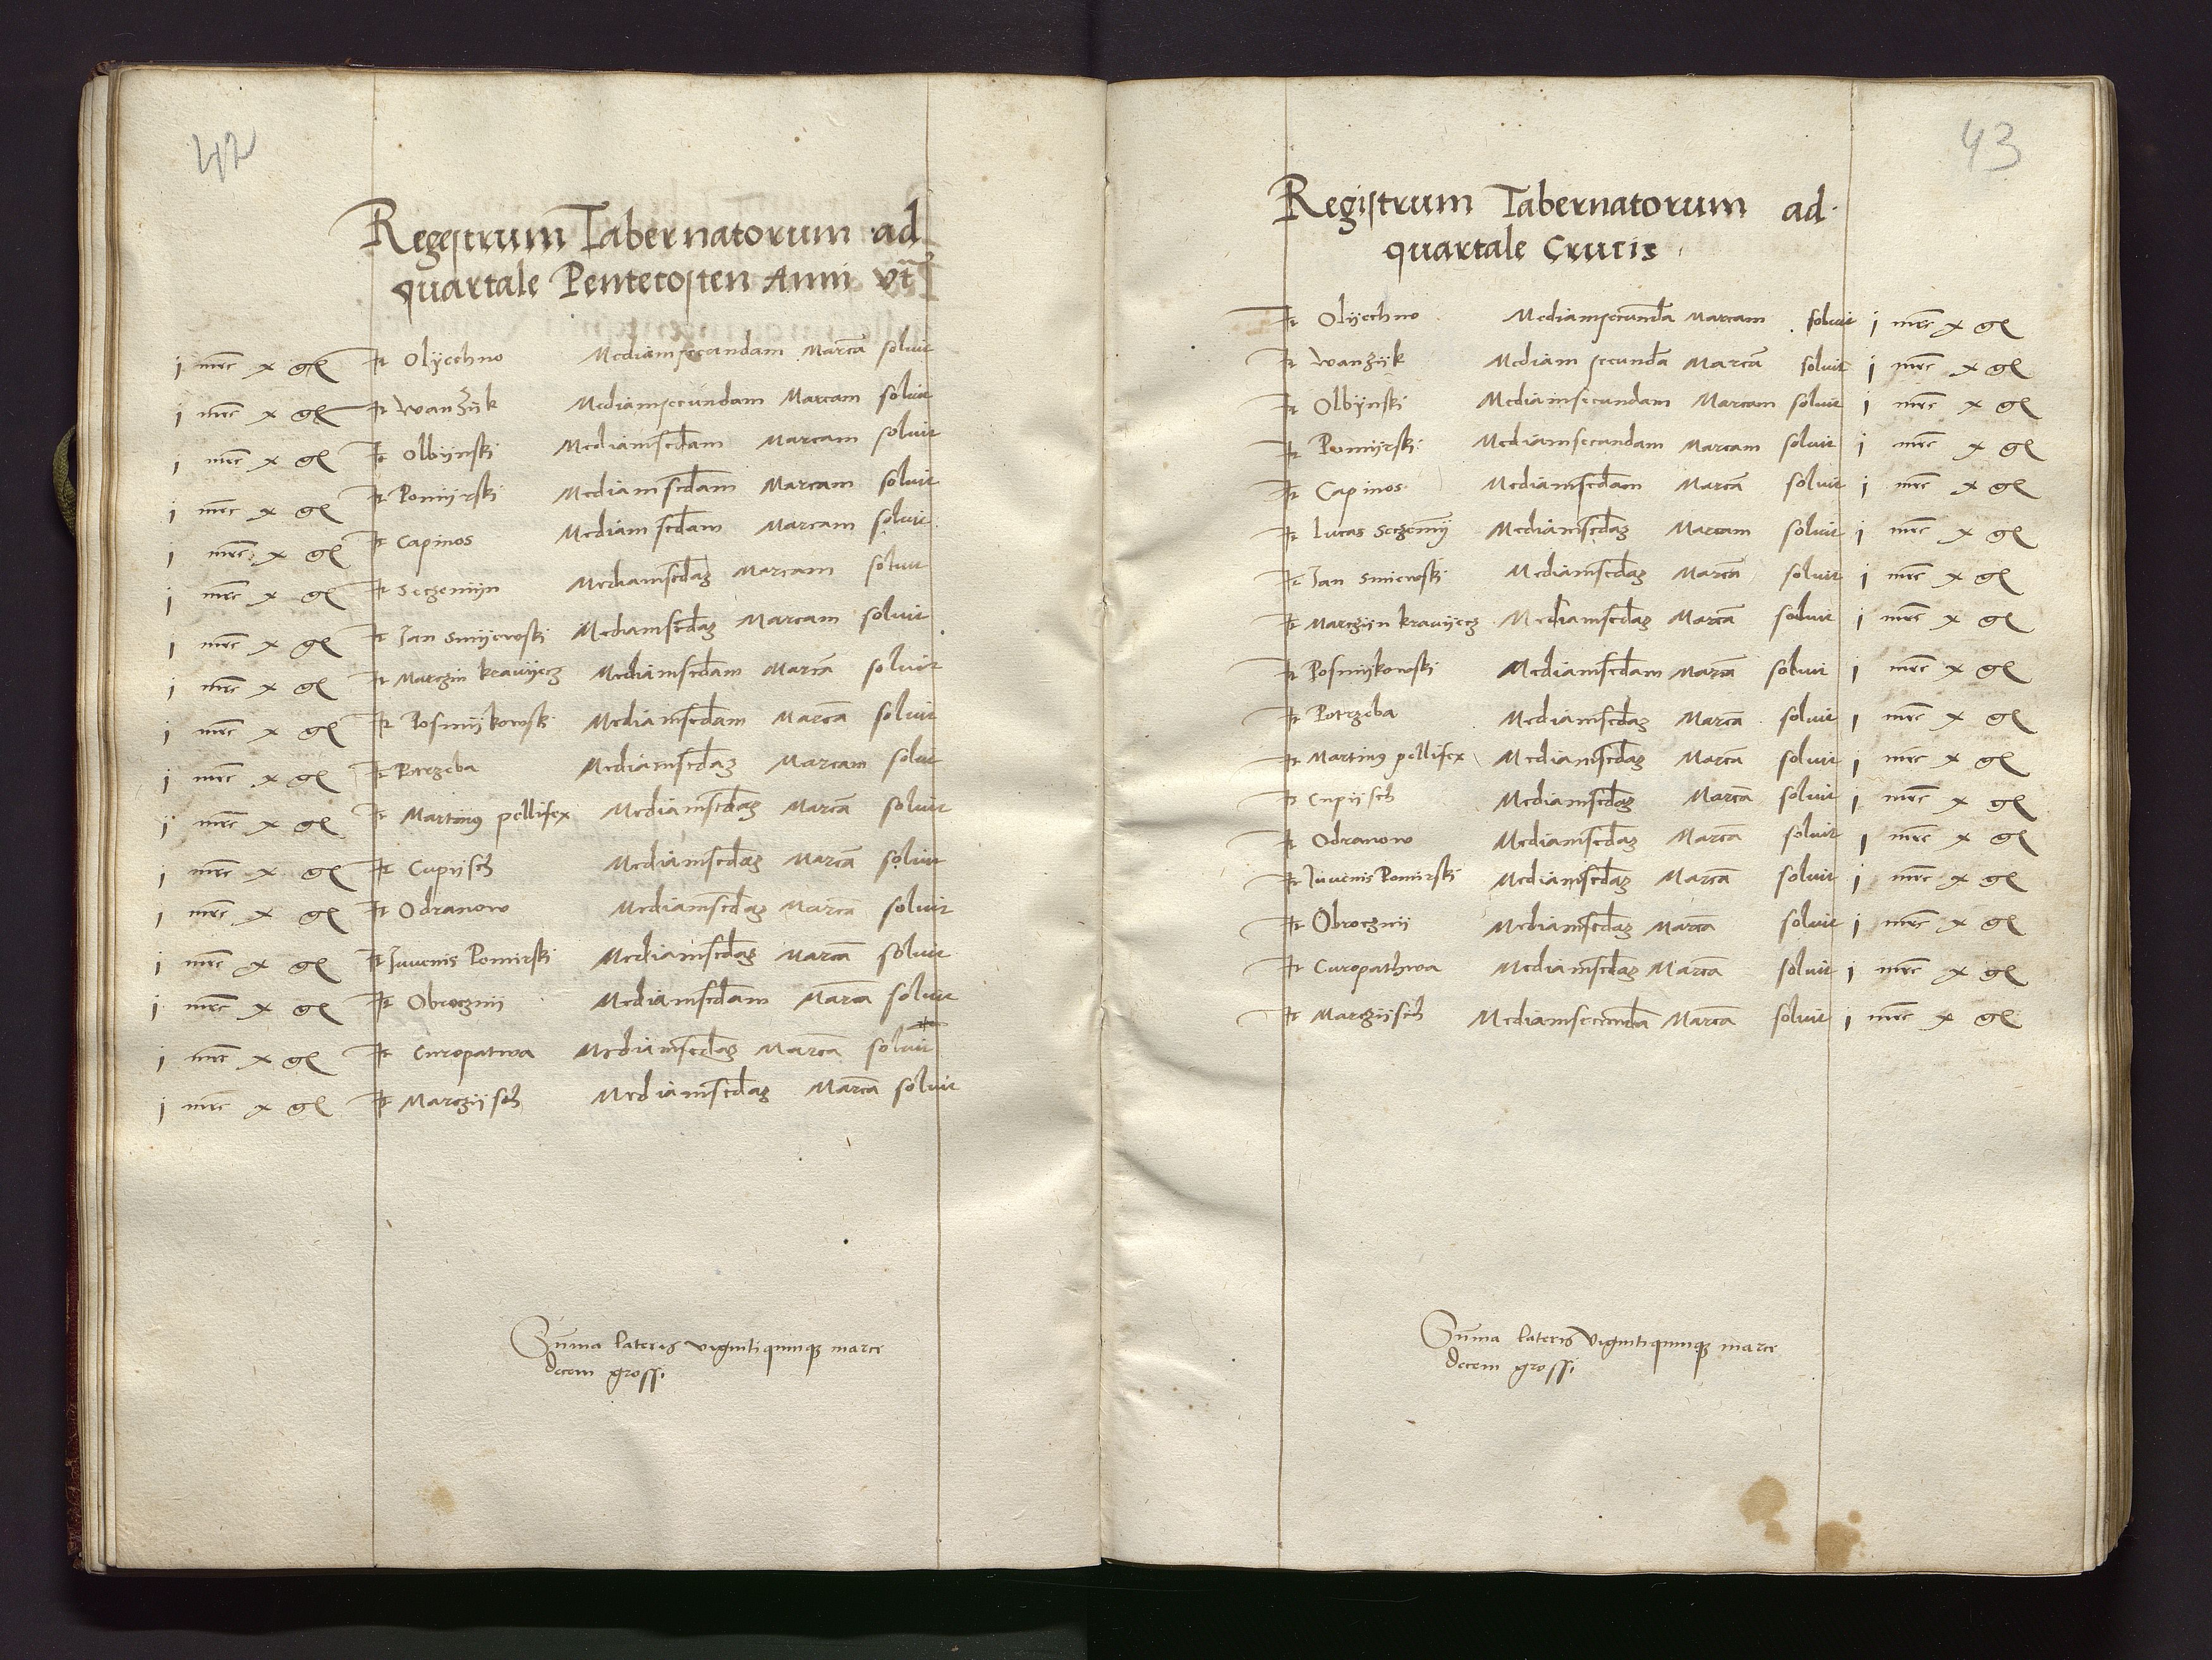 42
Regestrum Tabernatorum ad
quartale Pentecosten Anni vt s
j mrc x gr It Olyechno Mediamsecundam Marcā soluit
j mrc x gr It Wanzyk Mediamsecundam Marcam soluit
j mrc x gr It Olbynski Mediamscdam Marcam soluit
j mrc x gr It Pomyrski Mediamscdam Marcam soluit
j mrc x gr It Capinos Mediamscdam Marcam soluit
j mrc x gr It Seczemyn Mediamscdaz Marcam soluit
j mrc x gr It Jan Smyewski Mediamscdaz Marcam soluit
j mrc x gr It Marczin kravyecz Mediamscdam Marcā soluit
j mrc x gr It Posmykowski Mediamscdam Marcā soluit
j mrc x gr It Potrzeba Mediamscdaz Marcam soluit
j mrc x gr It Martinus pellifex Mediamscdaz Marcā soluit
j mrc x gr It Cupysch Mediamscdaz Marcā soluit
j mrc x gr It Odranow Mediamscdaz Marcā soluit
j mrc x gr It Juvenis Pomirski Mediamscdaz Marcā soluit
j mrc x gr It Obrocznii Mediamscdam Marcā soluit
j mrc x gr It Curopatwa Mediamscdaz Marcā soluit
j mrc x gr It Marczysch Mediamscdaz Marcā soluit
Sūma lateris vigintiquinqz marce
decem grossi
43
Registrum Tabernatorum ad
quartale Crucis
It Olyechno Mediamsecundā Marcam soluit j mrc x gr
It Wanzyk Mediam secundā Marcā soluit j mrc x gr
It Olbynski Mediamsecundam Marcam soluit j mrc x gr
It Pomyrski Mediamsecundam Marcam soluit j mrc x gr
It Capinos Mediamscdam Marcā soluit j mrc x gr
It Lucas Seczemy Mediamscdaz Marcam soluit j mrc x gr
It Jan Smiewski Mediamscdaz Marcā soluit j mrc x gr
It Marczyn kravyecz Mediamscdaz Marcā soluit j mrc x gr
It Posmykowski Mediamscdam Marcā soluit j mrc x gr
It Potrzeba Mediamscdaz Marcā soluit j mrc x gr
It Martinus pellifex Mediamscdaz Marcā soluit j mrc x gr
It Cupysch Mediamscdaz Marcā soluit j mrc x gr
It Odranow Mediamscdaz Marcā soluit j mrc x gr
It Juvenis Pomirski Mediamscdaz Marcā soluit j mrc x gr
It Obrocznii Mediamscdaz Marcā soluit j mrc x gr
It Curopathwa Mediamscdaz Marcā soluit j mrc x gr
It Marczysch Mediamsecundā Marcā soluit j mrc x gr
Sūma lateris vigintiquinqz marce
decem grossi